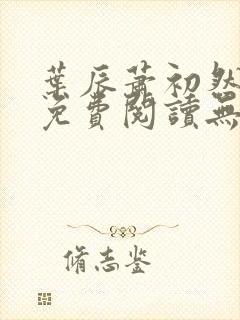 葉辰蕭初然
免費閱讀無
脩志鉴